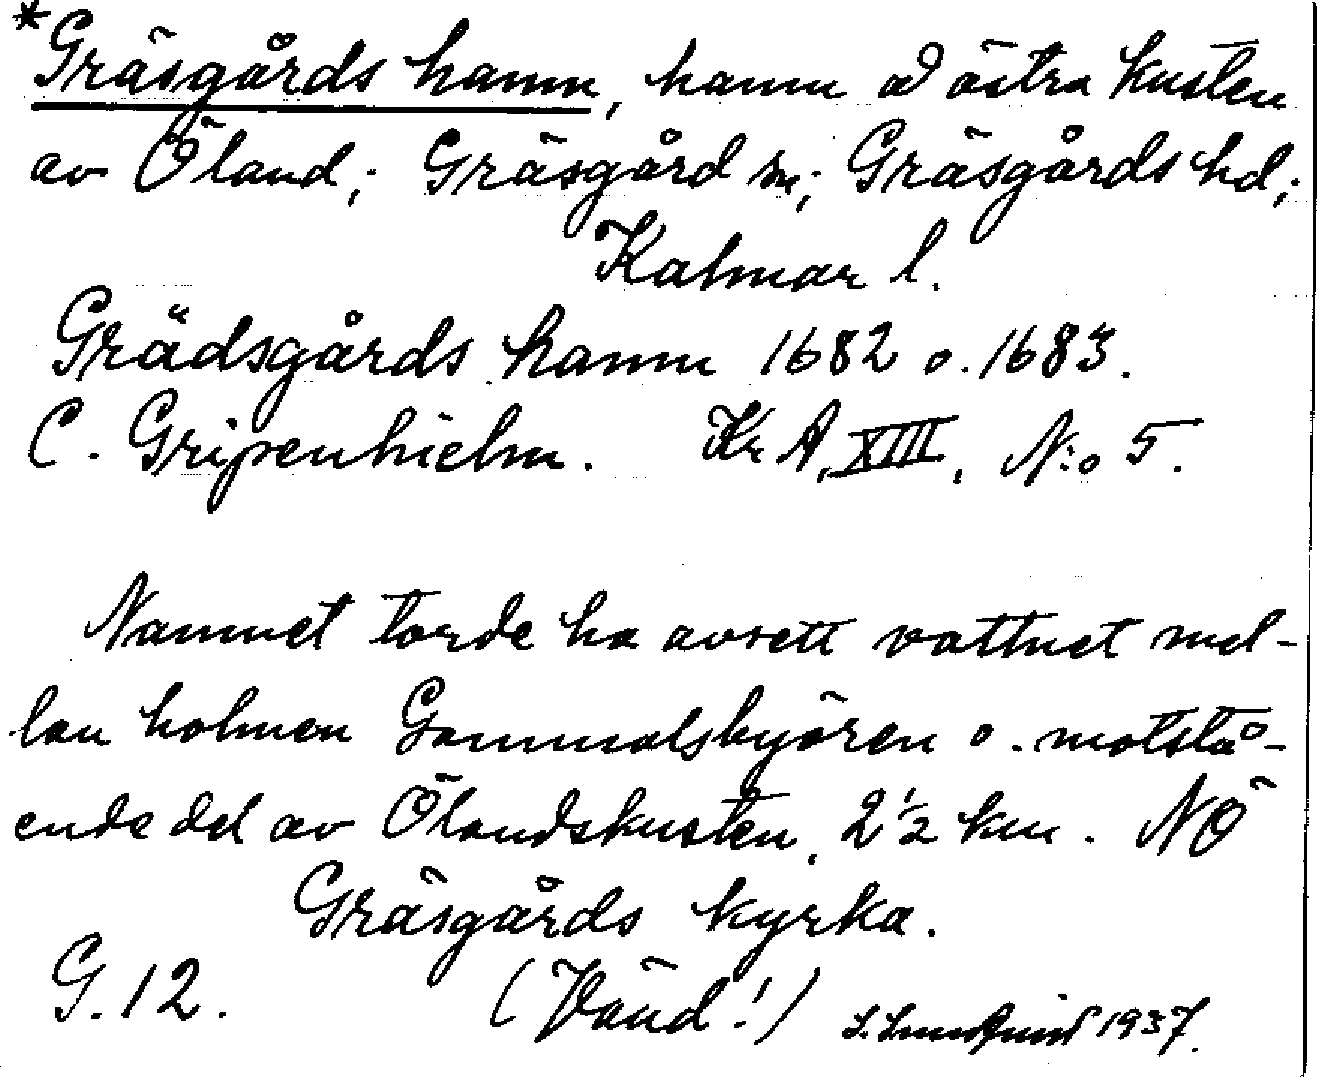 *Gräsgårds hamn, hamn å östra kusten
av Öland; Gräsgård sn; Gräsgårds hd;
Kalmar l.
Grädsgårds hamn 1682 o. 1683.
C. Gripenhielm. Kr A, XIII, N:o 5.
Namnet torde ha avsett vattnet mel-
lan holmen Gammalsbyören o. motstå-
ende del av Ölandskusten, 2½ km. NÖ
Gräsgårds kyrka.
G. 12. (Vänd!) S. Lundqvist 1937.